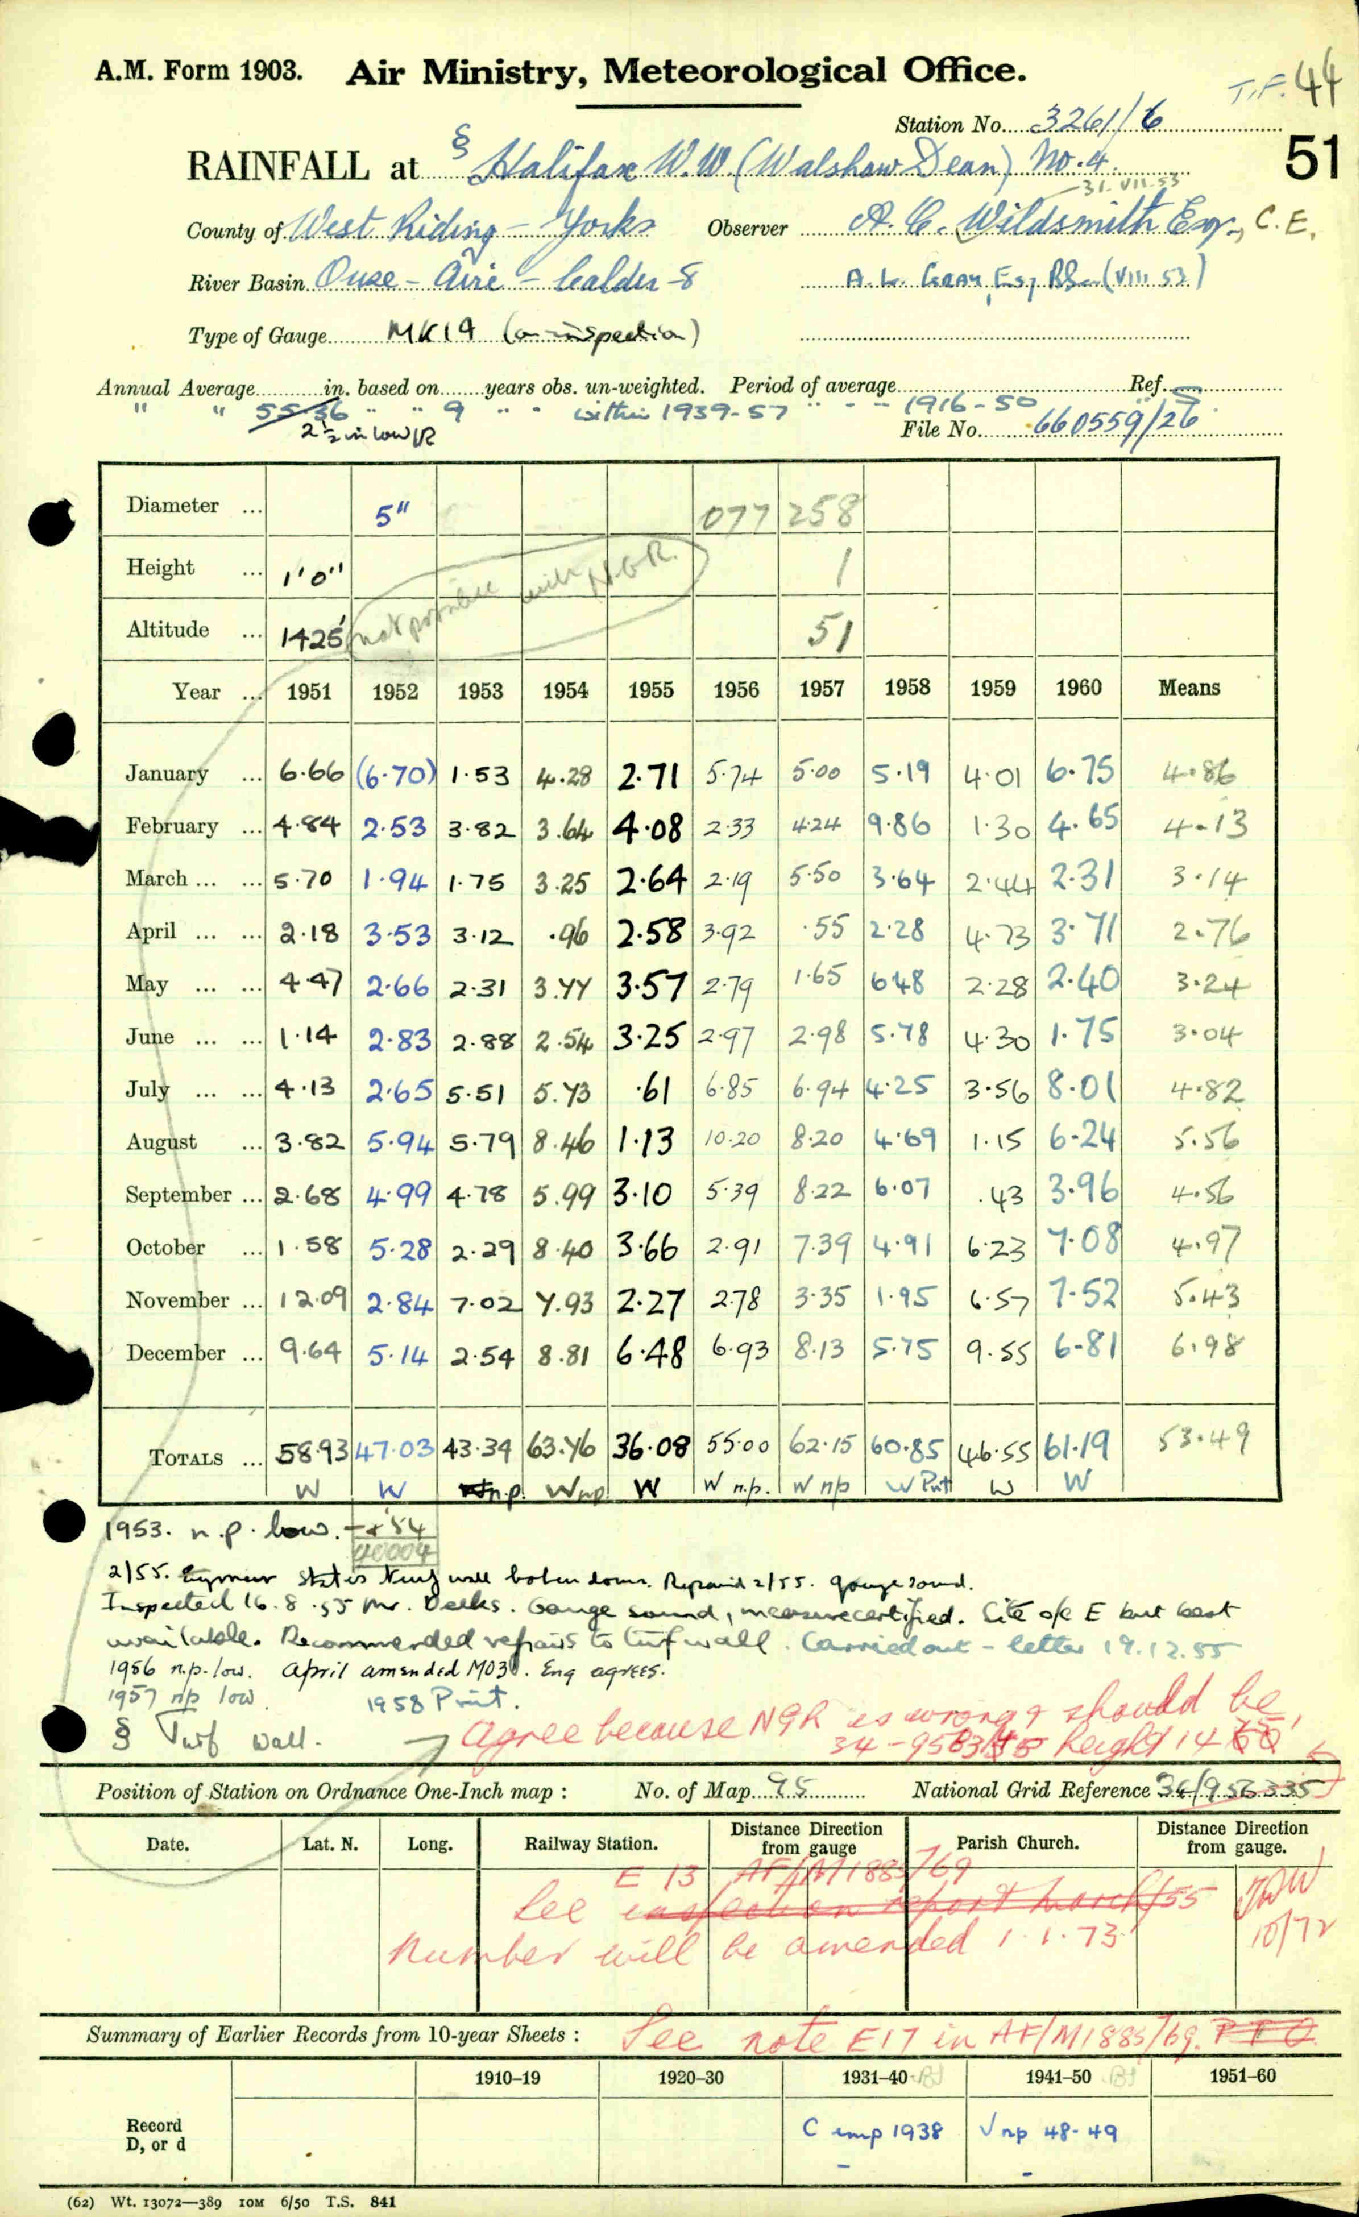 T.F. 44
A.M. Form 1903. Air Ministry, Meteorological Office.
Station No. 3261/6
51
RAINFALL at § Halifax W.W. (Walshaw Dean) No. 4.
31.VII.53
County of West Riding - Yorks Observer A. C. Wildsmith Esq., C.E.
River Basin Ouse - Aire - Calder - 8 A. L. Esq (VIII 53)
Type of Gauge MK 19 (on inspection)
Annual Average in. based on years obs. un-weighted. Period of average Ref.
" " 55.36 " " 9 " " within 1939-57 " - - 1916-50
2½ in low
File No. 660559/26
Diameter ... 5" 077 258
Height ... 1'0" 1
Altitude ... 1425' 51
not possible with N.G.R.
Year ... 1951 1952 1953 1954 1955 1956 1957 1958 1959 1960 Means
January ... 6.66 (6.70) 1.53 4.28 2.71 5.74 5.00 5.19 4.01 6.75 4.86
February ... 4.84 2.53 3.82 3.64 4.08 2.33 4.24 9.86 1.30 4.65 4.13
March ... ... 5.70 1.94 1.75 3.25 2.64 2.19 5.50 3.64 2.44 2.31 3.14
April ... ... 2.18 3.53 3.12 .96 2.58 3.92 .55 2.28 4.73 3.71 2.76
May ... ... 4.47 2.66 2.31 3.77 3.57 2.79 1.65 6.48 2.28 2.40 3.24
June ... ... 1.14 2.83 2.88 2.54 3.25 2.97 2.98 5.78 4.30 1.75 3.04
July ... ... 4.13 2.65 5.51 5.73 .61 6.85 6.94 4.25 3.56 8.01 4.82
August ... 3.82 5.94 5.79 8.46 1.13 10.20 8.20 4.69 1.15 6.24 5.56
September ... 2.68 4.99 4.78 5.99 3.10 5.39 8.22 6.07 .43 3.96 4.56
October ... 1.58 5.28 2.29 8.40 3.66 2.91 7.39 4.91 6.23 7.08 4.97
November ... 12.09 2.84 7.02 7.93 2.27 2.78 3.35 1.95 6.57 7.52 5.43
December ... 9.64 5.14 2.54 8.81 6.48 6.93 8.13 5.75 9.55 6.81 6.98
TOTALS ... 58.93 47.03 43.34 63.76 36.08 55.00 62.15 60.85 46.55 61.19 53.49
W W n.p. W np W W n.p. W np W Prnt W W
1953. n.p. low. - + 54
40004
2/55. states turf wall broken down. Repaired 2/55. gauge sound.
Inspected 16.8.55 Mr. Deeks. Gauge sound, measure certified. Site o/e E but best
available. Recommended repairs to turf wall. Carried out - letter 19.12.55
1956 n.p. low. April amended MO3. Eng agrees.
1957 np low 1958 Print.
§ Turf wall.
agree because NGR is wrong & should be
34-953 height 14
Position of Station on Ordnance One-Inch map : No. of Map 95 National Grid Reference 34/956335
Date. Lat. N. Long. Railway Station. Distance Direction from gauge Parish Church. Distance Direction from gauge.
E 13 AF/M1885/69
See inspection report March/55
Number will be amended 1.1.73
10/72
Summary of Earlier Records from 10-year Sheets : See note E17 in AF/M1885/69. PTO
1910–19 1920–30 1931–40 1941–50 1951–60
Record C imp 1938 √ np 48-49
D, or d - -
(62) Wt. 13072—389 10M 6/50 T.S. 841